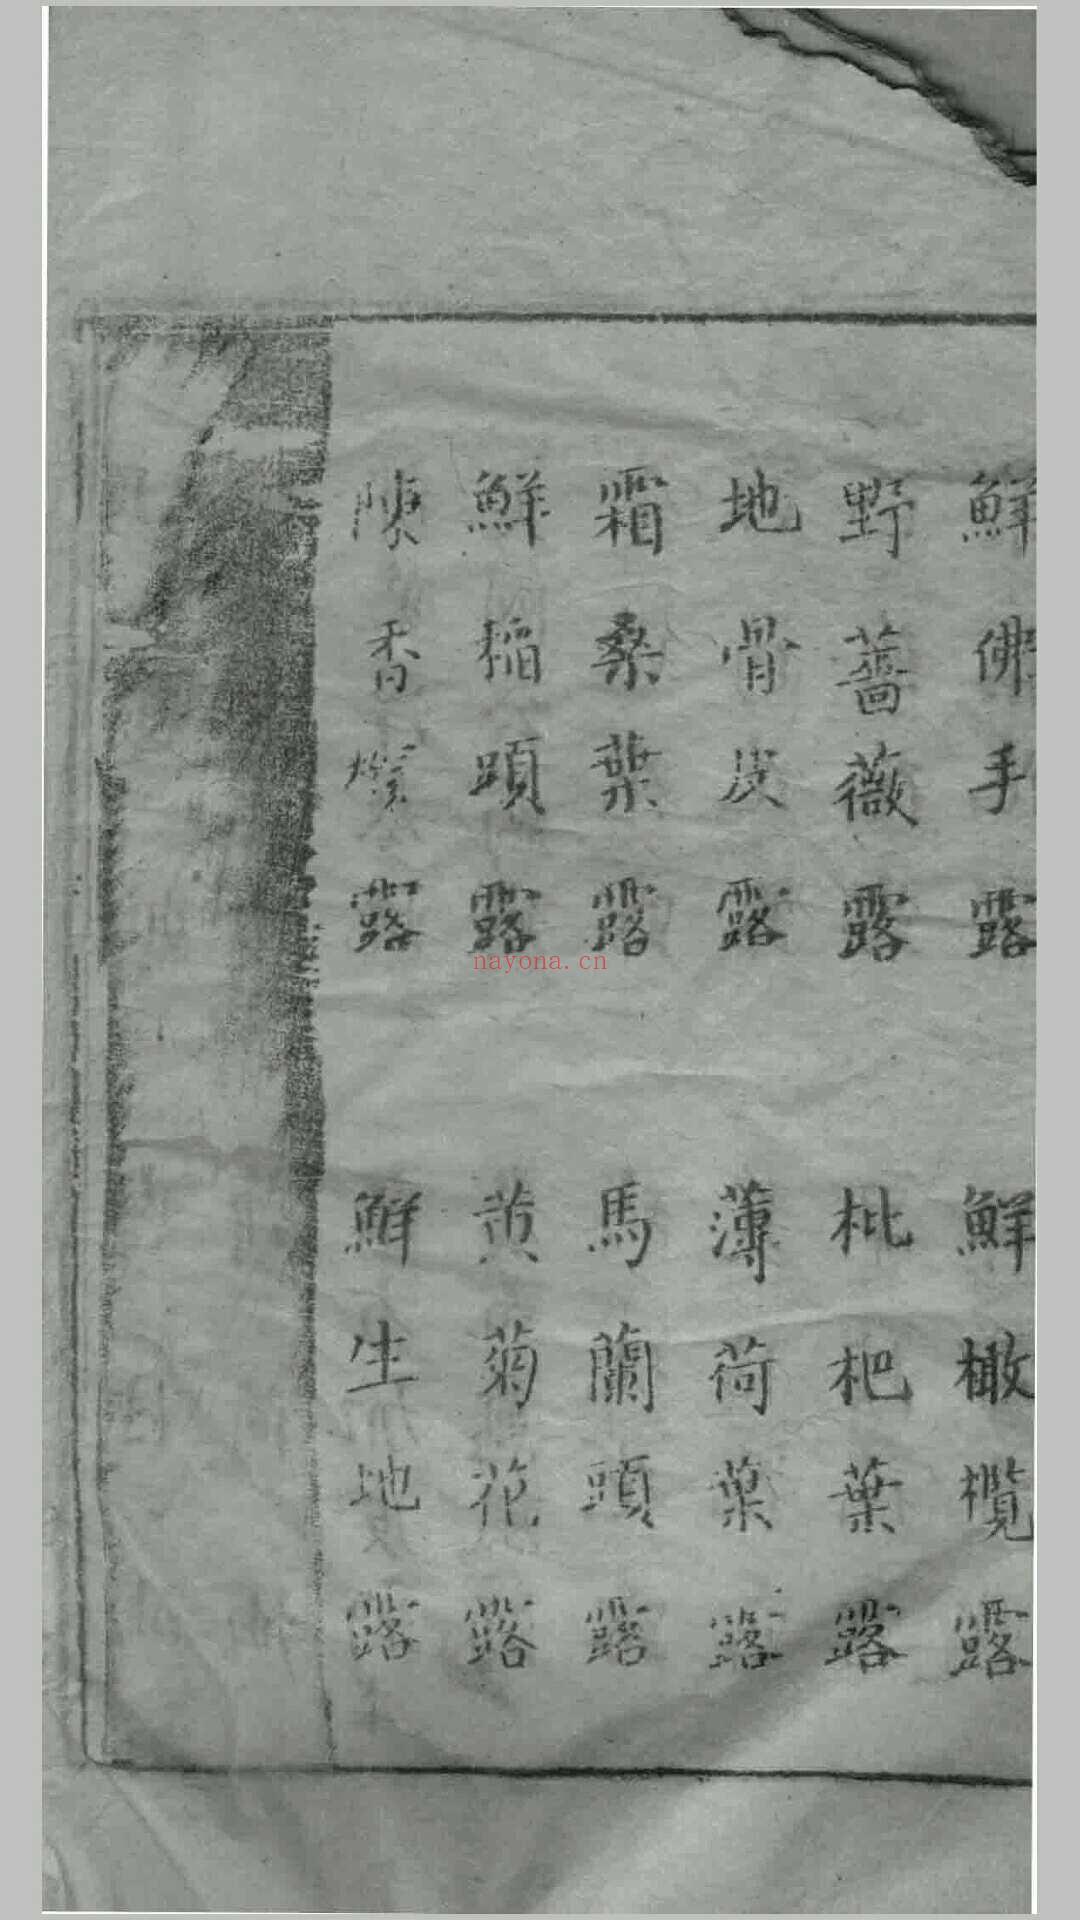 鮮佛手露
鮮橄欖露
野薔薇露
枇杷葉露
地骨皮露
薄荷葉露
霜桑葉露
馬蘭頭露
鮮稻頭露
黄菊花露
陳香櫞露
鮮生地露
nayona.cn